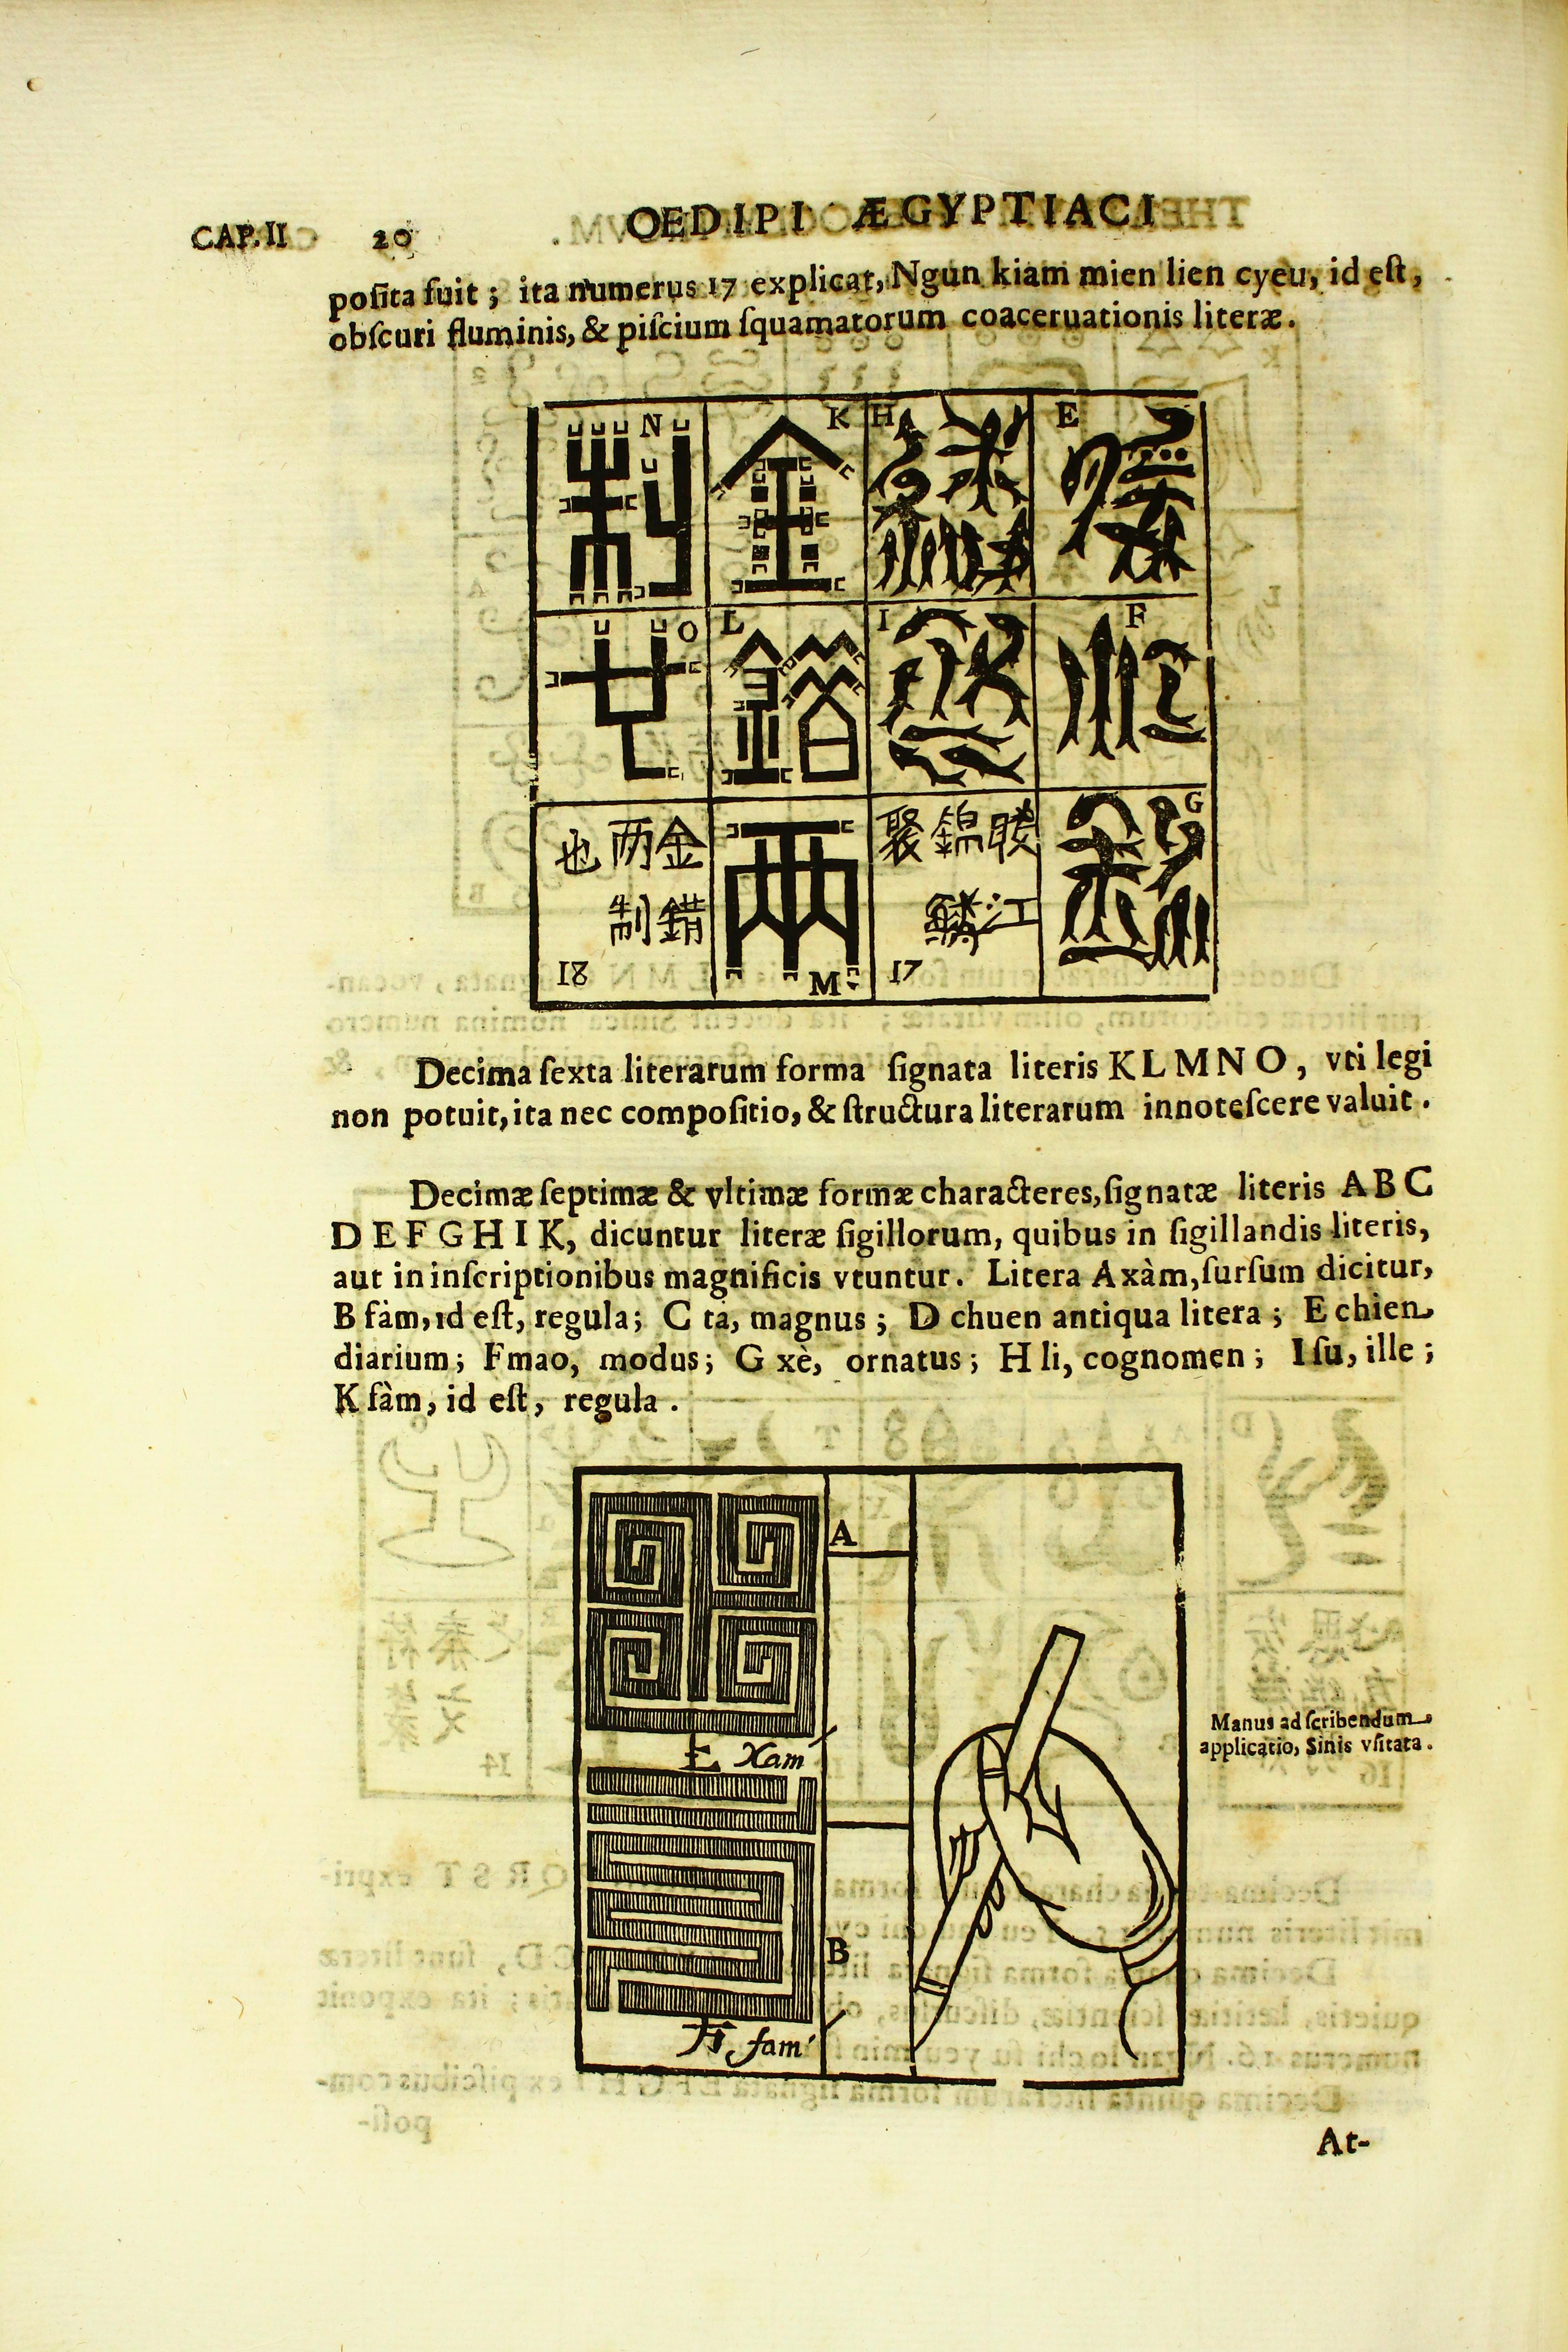 CAP. II 20 OEDIPI ÆGYPTIACI
poſita fuit ; ita numerus 17 explicat, Ngun kiam mien lien cyeu, id eſt,
obſcuri fluminis, & piſcium ſquamatorum coaceruationis literæ.
N K H E
O L I F
G
也 两金 聚錦
制錯 江
18 M 17
Decima ſexta literarum forma ſignata literis K L M N O , vti legi
non potuit, ita nec compoſitio, & ſtructura literarum innoteſcere valuit .
Decimæ ſeptimæ & vltimæ formæ characteres, ſignatæ literis A B C
D E F G H I K, dicuntur literæ ſigillorum, quibus in ſigillandis literis,
aut in inſcriptionibus magnificis vtuntur. Litera A xàm, ſurſum dicitur,
B fàm, id eſt, regula; C ta, magnus ; D chuen antiqua litera ; E chien
diarium ; F mao, modus; G xè, ornatus ; H li, cognomen ; I ſu, ille ;
K fàm, id eſt, regula .
A
上 Xam
B
方 fam
Manus ad ſcribendum
applicatio, Sinis vſitata .
At-